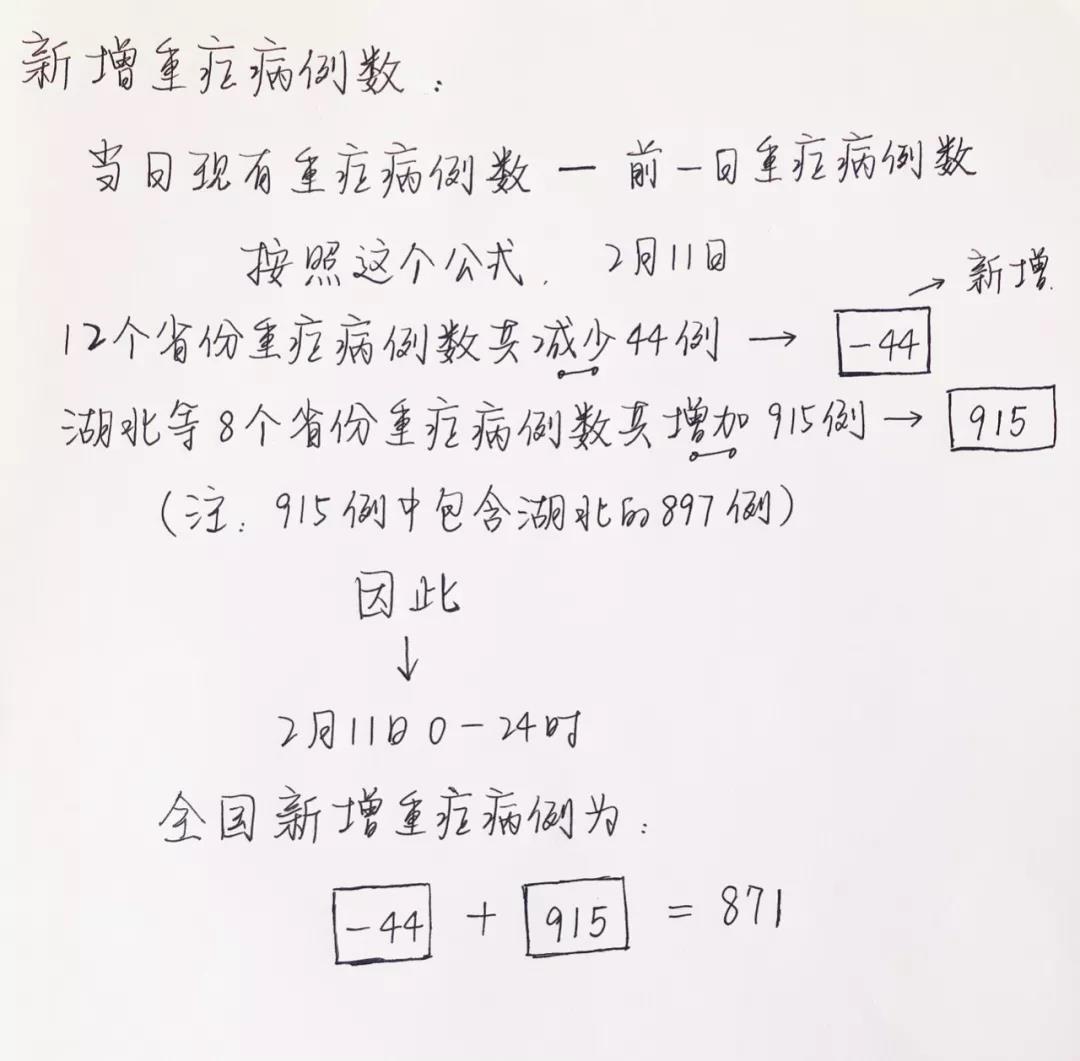 新增重症病例数：
当日现有重症病例数 — 前一日重症病例数
按照这个公式， 2月11日
→ 新增
12个省份重症病例数共减少44例 → -44
湖北等8个省份重症病例数共增加915例 → 915
（注：915例中包含湖北的897例）
因此
↓
2月11日0-24时
全国新增重症病例为：
-44 + 915 = 871